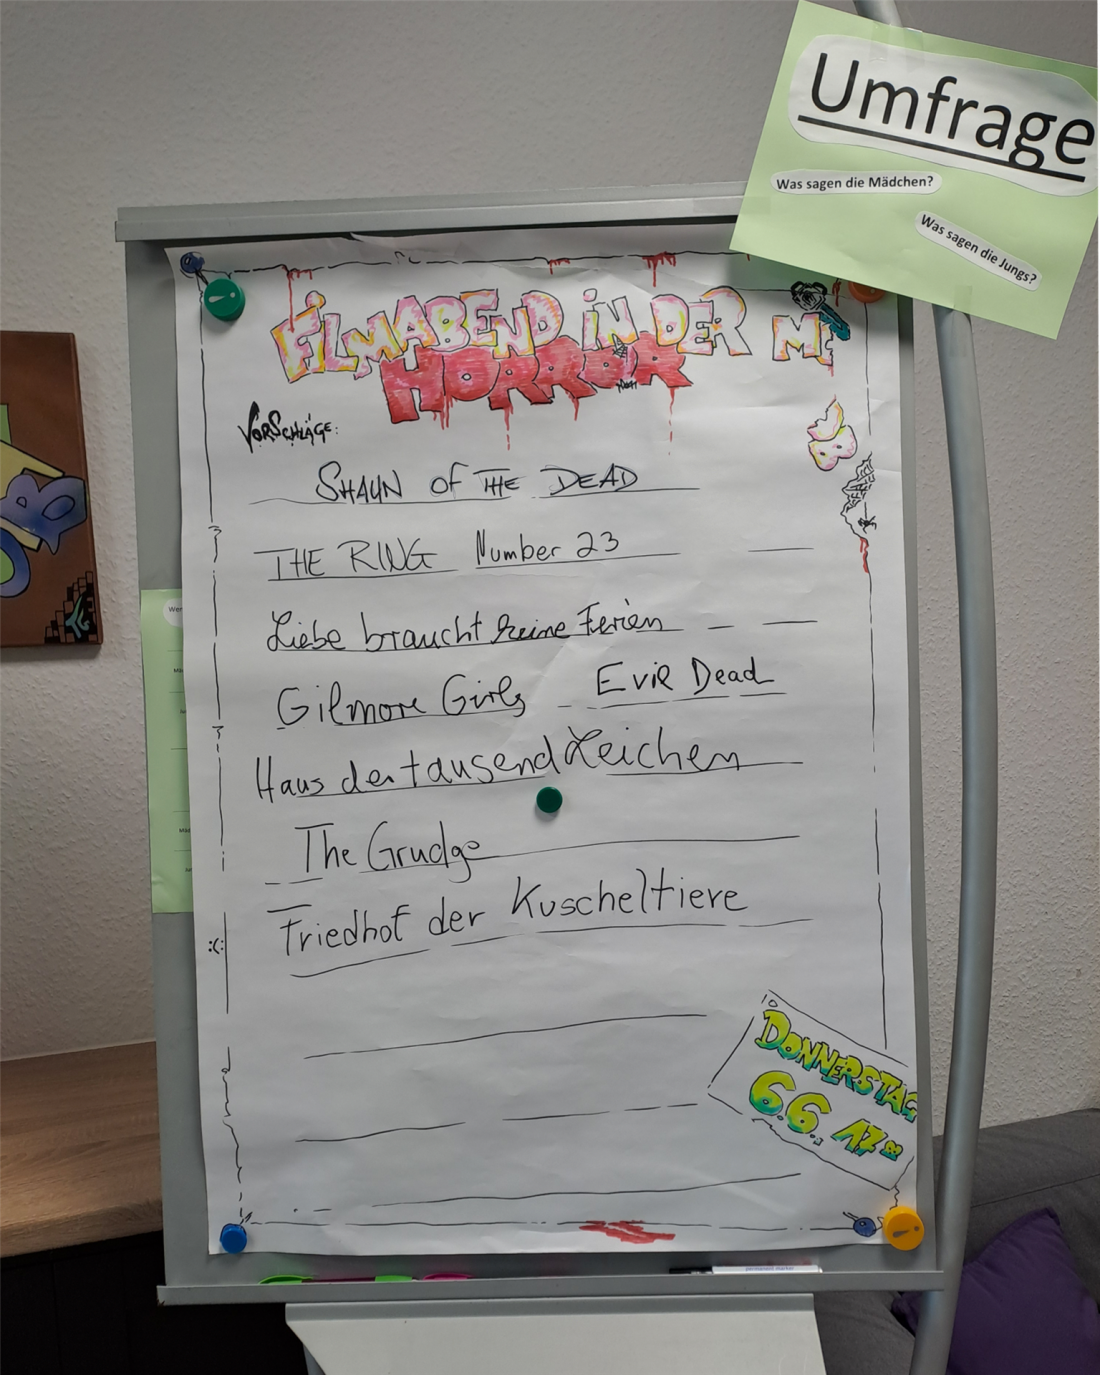 Umfrage
Was sagen die Mädchen?
Was sagen die Jungs?
FILMABEND IN DER
HORROR
VORSCHLÄGE:
SHAUN OF THE DEAD
THE RING Number 23
Liebe braucht keine Ferien
Gilmore Girls Evil Dead
Haus der tausend Leichen
The Grudge
Friedhof der Kuscheltiere
:(
DONNERSTAG
6.6. 17
permanent marker